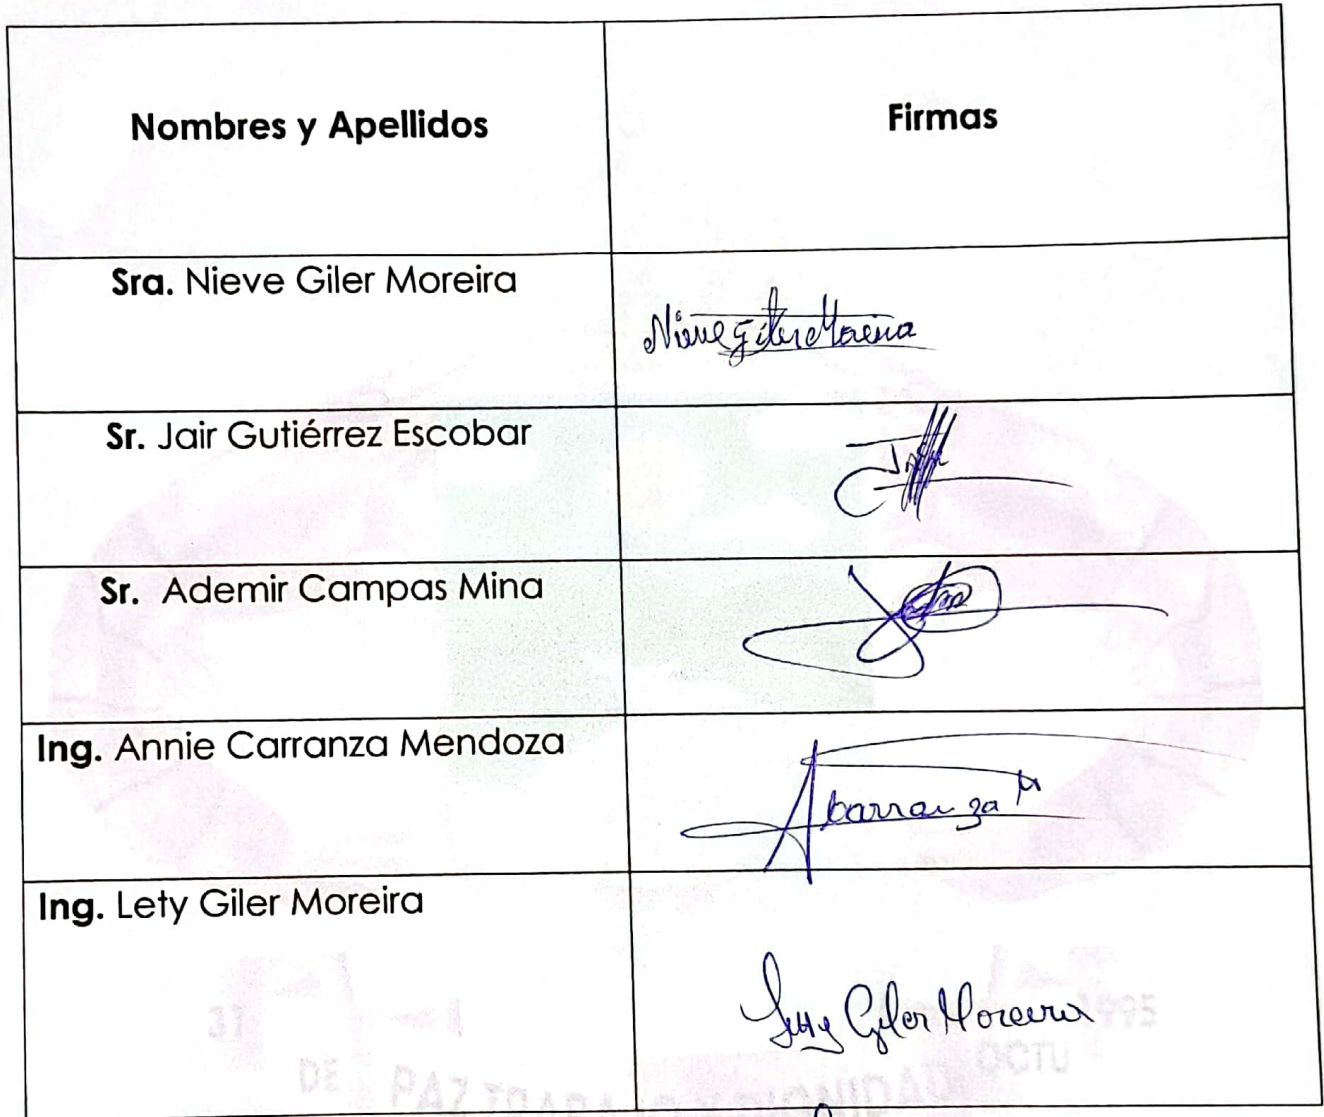 Nombres y Apellidos
Firmas
Sra. Nieve Giler Moreira
Nieve Giler Moreira
Sr. Jair Gutiérrez Escobar
Sr. Ademir Campas Mina
Ing. Annie Carranza Mendoza
Acarranza M
Ing. Lety Giler Moreira
Lety Giler Moreira
31
1995
OCTU
DE PAZ TRABAJO Y DIGNIDAD